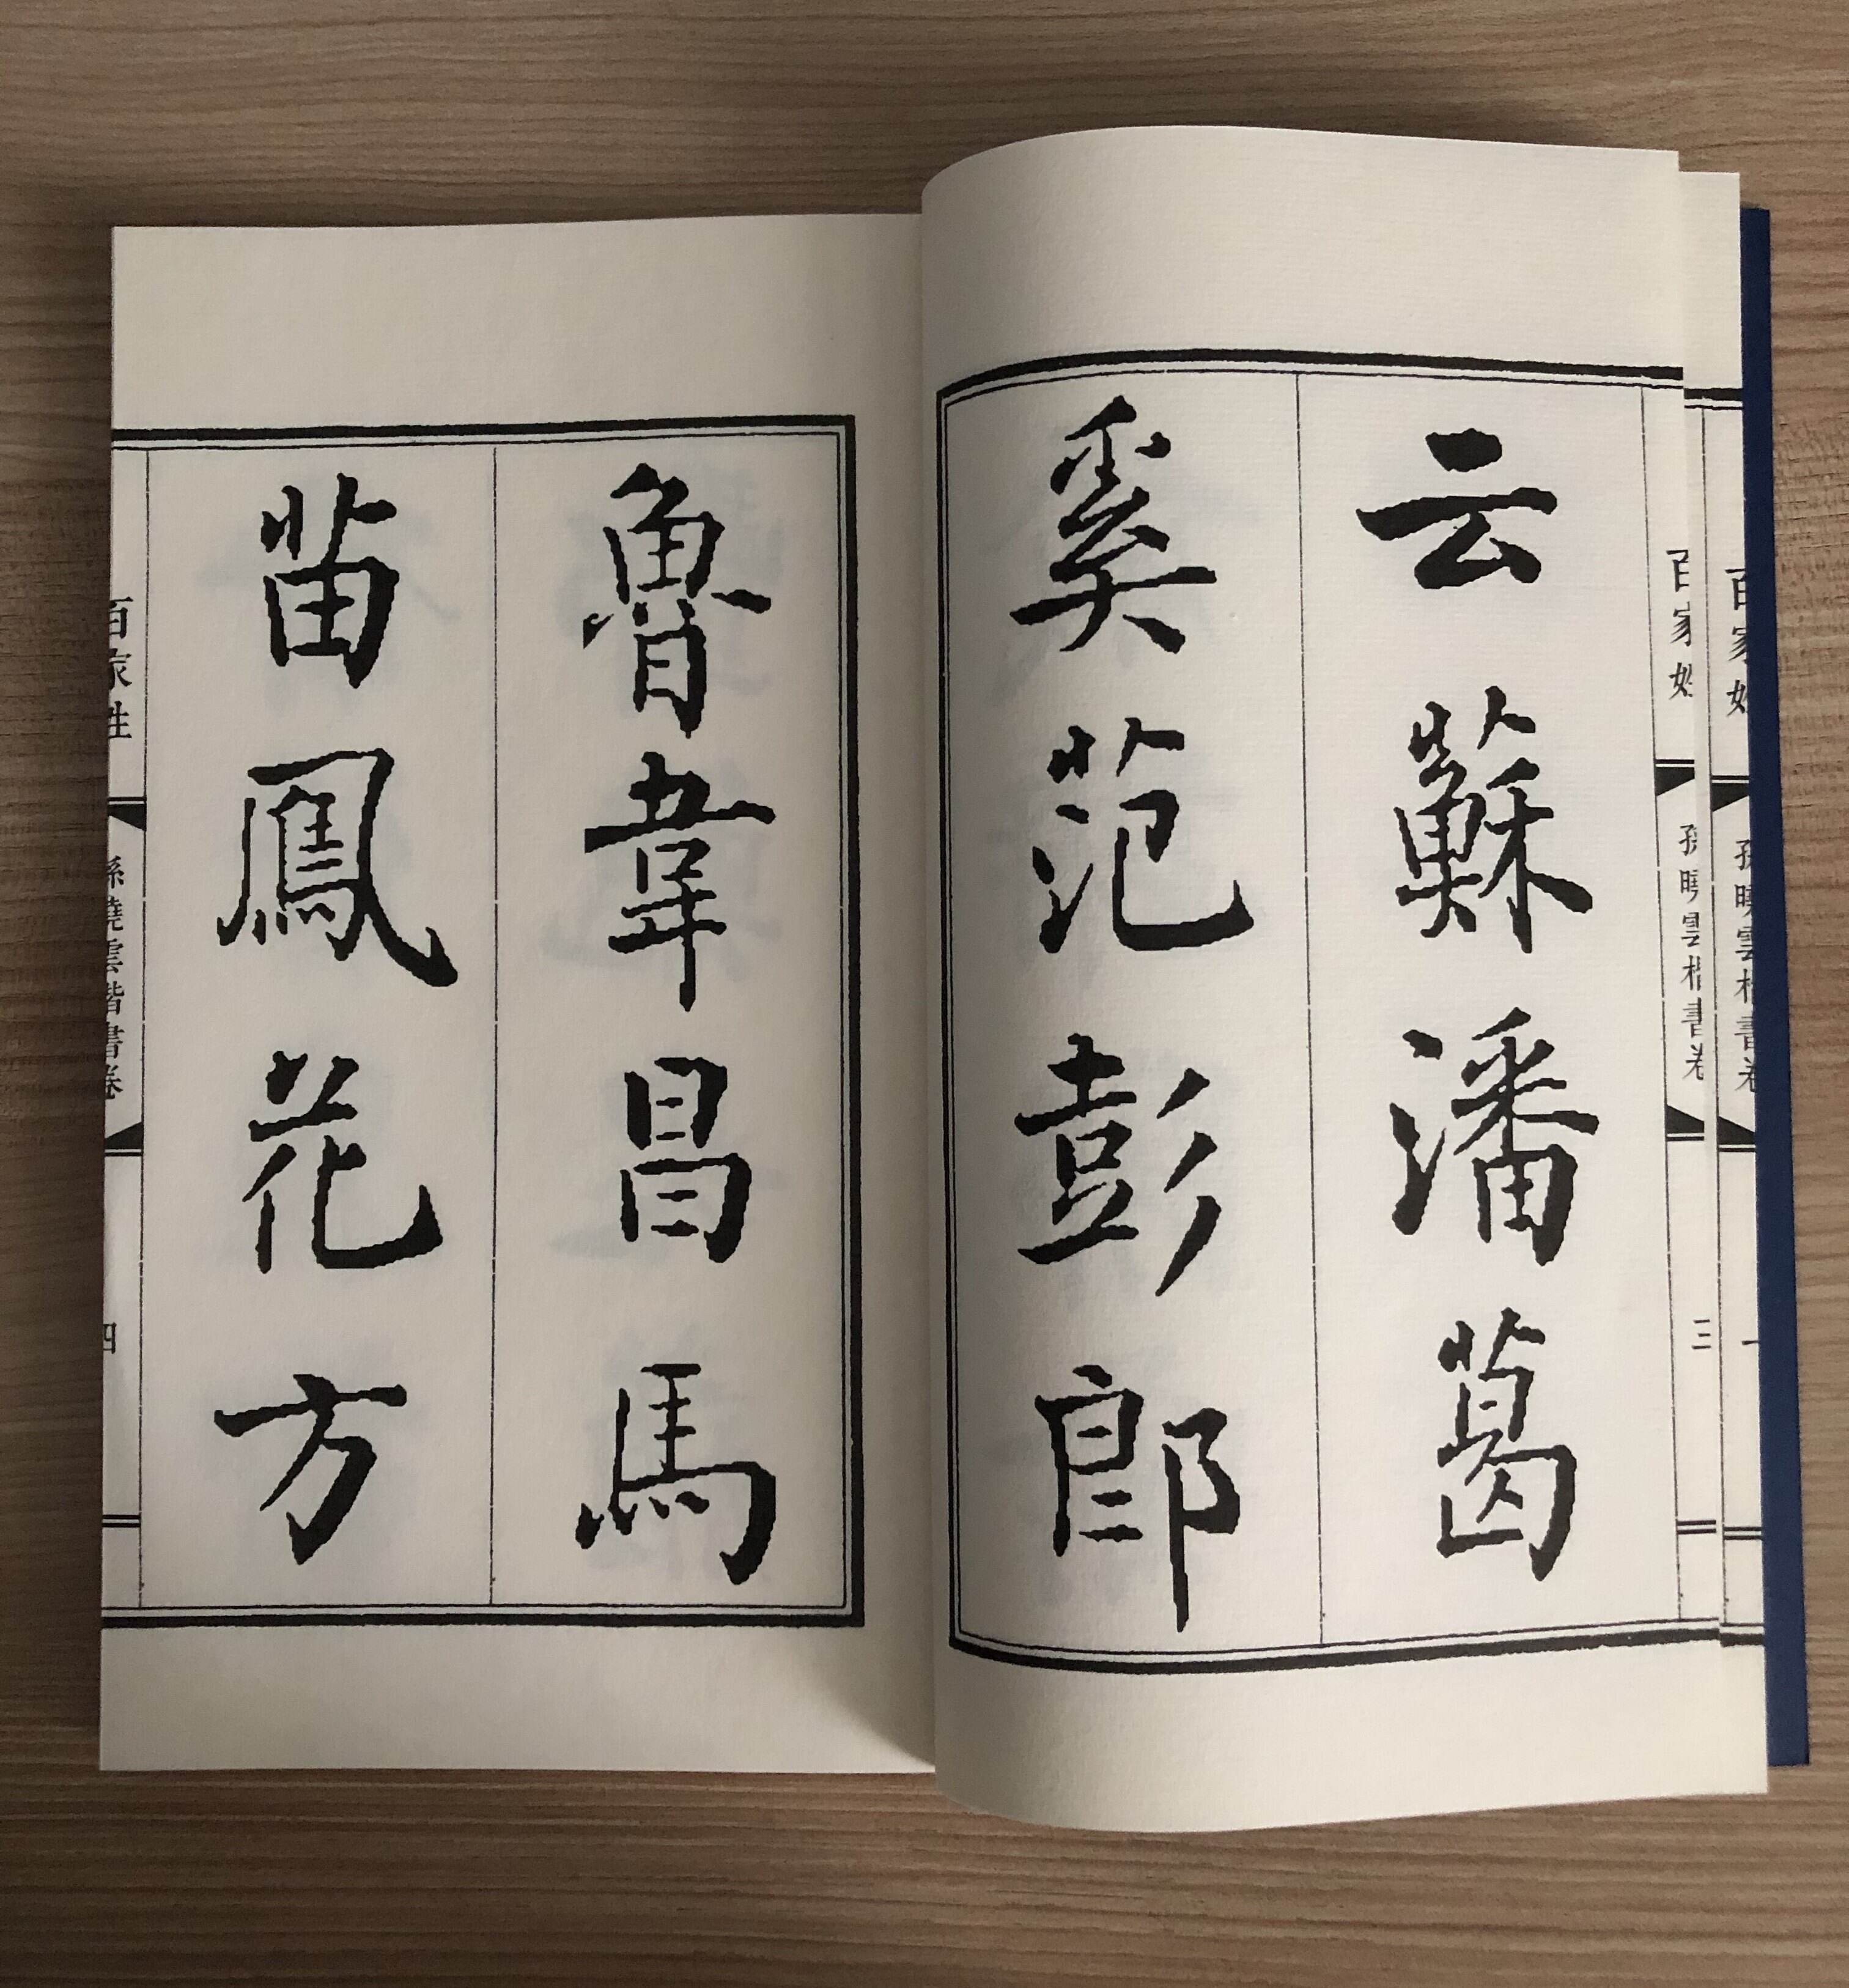 百家姓
孫曉雲楷書卷
三
云蘇潘葛
奚范彭郎
魯韋昌馬
苗鳳花方
百家姓
孫曉雲楷書卷
四